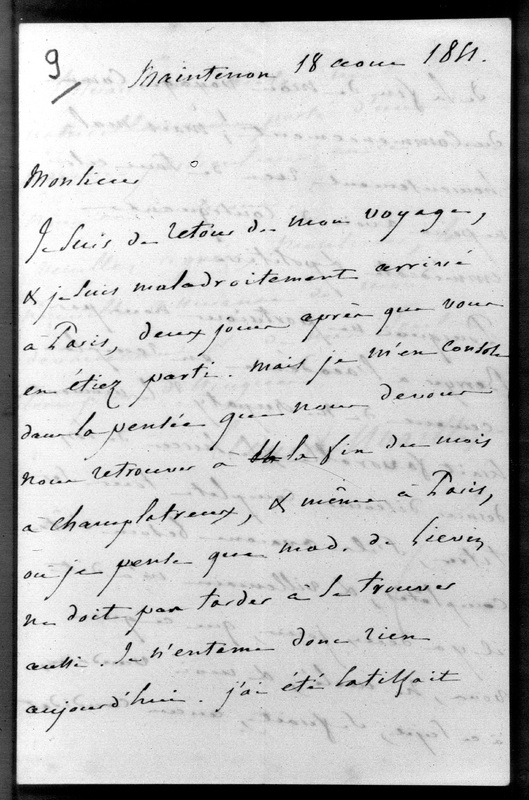 9
Maintenon 18 aout 1851.
Monsieur
Je suis de retour de mon voyage,
& je suis maladroitement arrivé
à Paris, deux jours après que vous
en étiez parti. mais je m'en console
dans la pensée que nous devons
nous retrouver à la fin du mois
à champlatreux, & même à Paris,
où je pense que mad. de Lieven
ne doit pas tarder à se trouver
aussi. Je n'entame donc rien
aujourd'hui. j'ai été satisfait